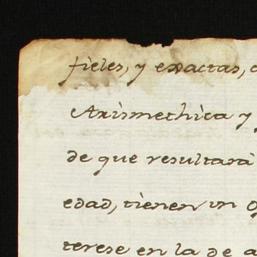 fieles, y exactas,
Arismethica y
de que resultará
edad, tienen un
terese en la de a